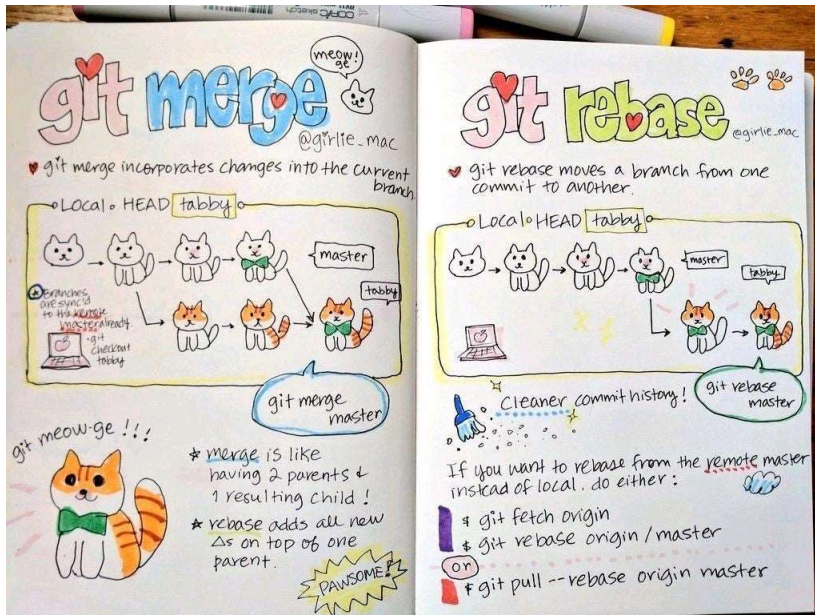 COPIC sketch
git merge
meow!
ge
@girlie_mac
git merge incorporates changes into the current
branch.
LOCAL HEAD tabby
master
tabby
Branches
are sync'd
to the remote
master already
git
checkout
tabby
git merge
master
git meow-ge !!!
merge is like
having 2 parents &
1 resulting child !
rebase adds all new
Δs on top of one
parent.
PAWSOME!
git rebase
@girlie_mac
git rebase moves a branch from one
commit to another.
LOCAL HEAD tabby
master
tabby
git rebase
master
Cleaner commit history!
If you want to rebase from the remote master
instead of local. do either :
$ git fetch origin
$ git rebase origin/master
or
$ git pull --rebase origin master